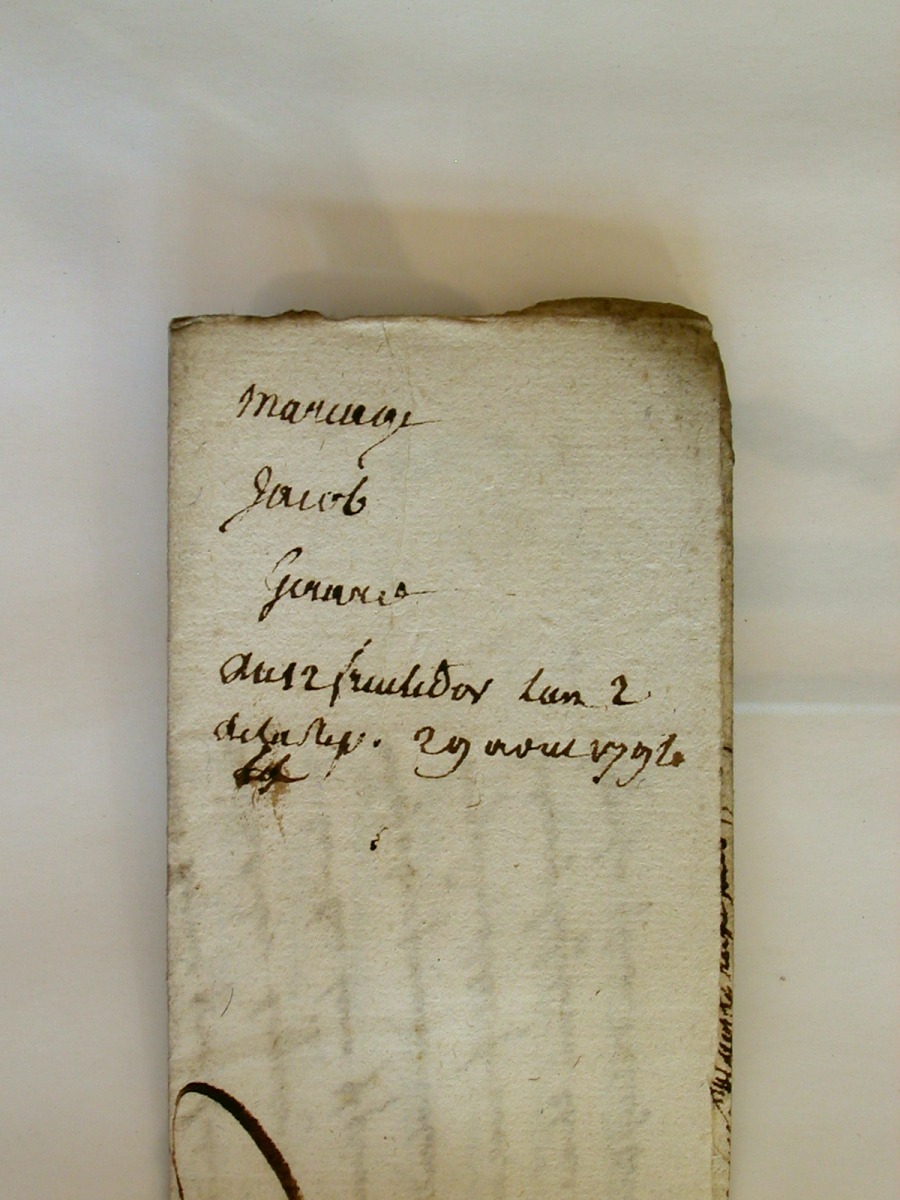 Mariage
Jacob
Girard
du 12 fructidor lan 2
de la Rep. 29 aout 1794